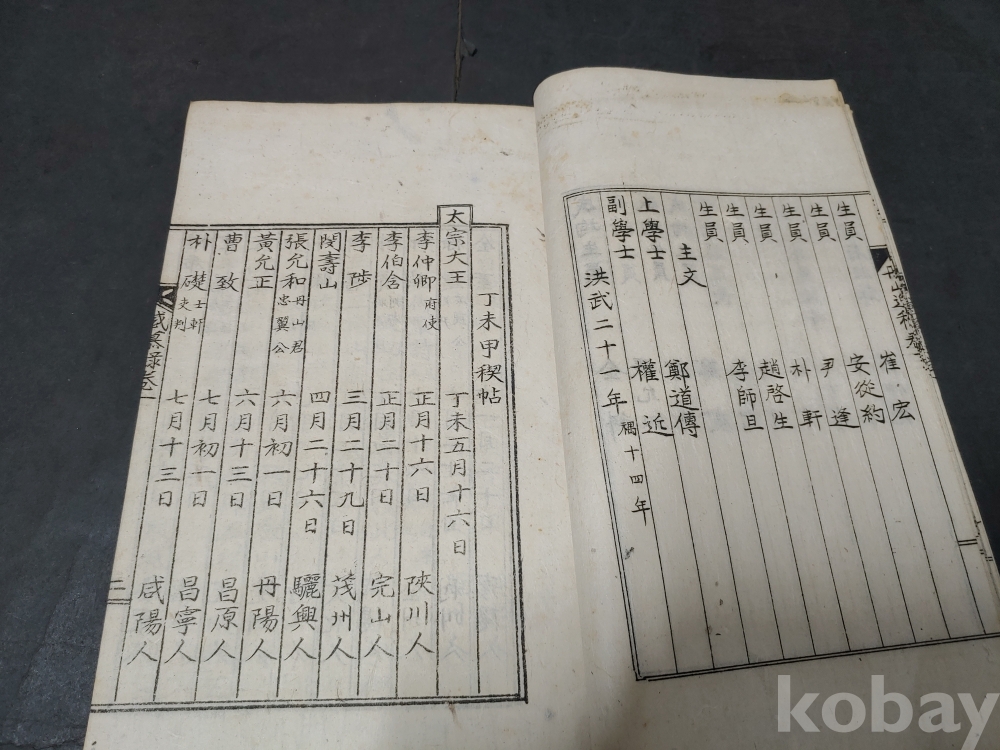 生員 崔宏
生員 安從約
生員 尹逢
生員 朴軒
生員 趙啓生
生員 李師旦
主文
上學士 鄭道傳
副學士 權近
洪武二十一年 禑十四年
丁未甲稧帖
太宗大王 丁未五月十六日
李仲卿 府使 正月十六日 陜川人
李伯含 正月二十日 完山人
李陟 三月二十九日 茂州人
閔壽山 四月二十六日 驪興人
張允和 丹山君 忠翼公 六月初一日 丹陽人
黃允正 六月十三日 昌原人
曹致 七月初十日 昌寧人
朴礎 士軒 吏判 七月十三日 咸陽人
感慕錄卷一 三
kobay